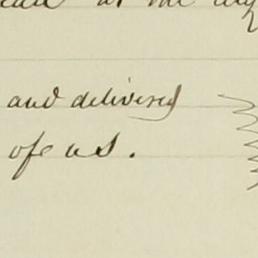 at the
and delivered
of us.